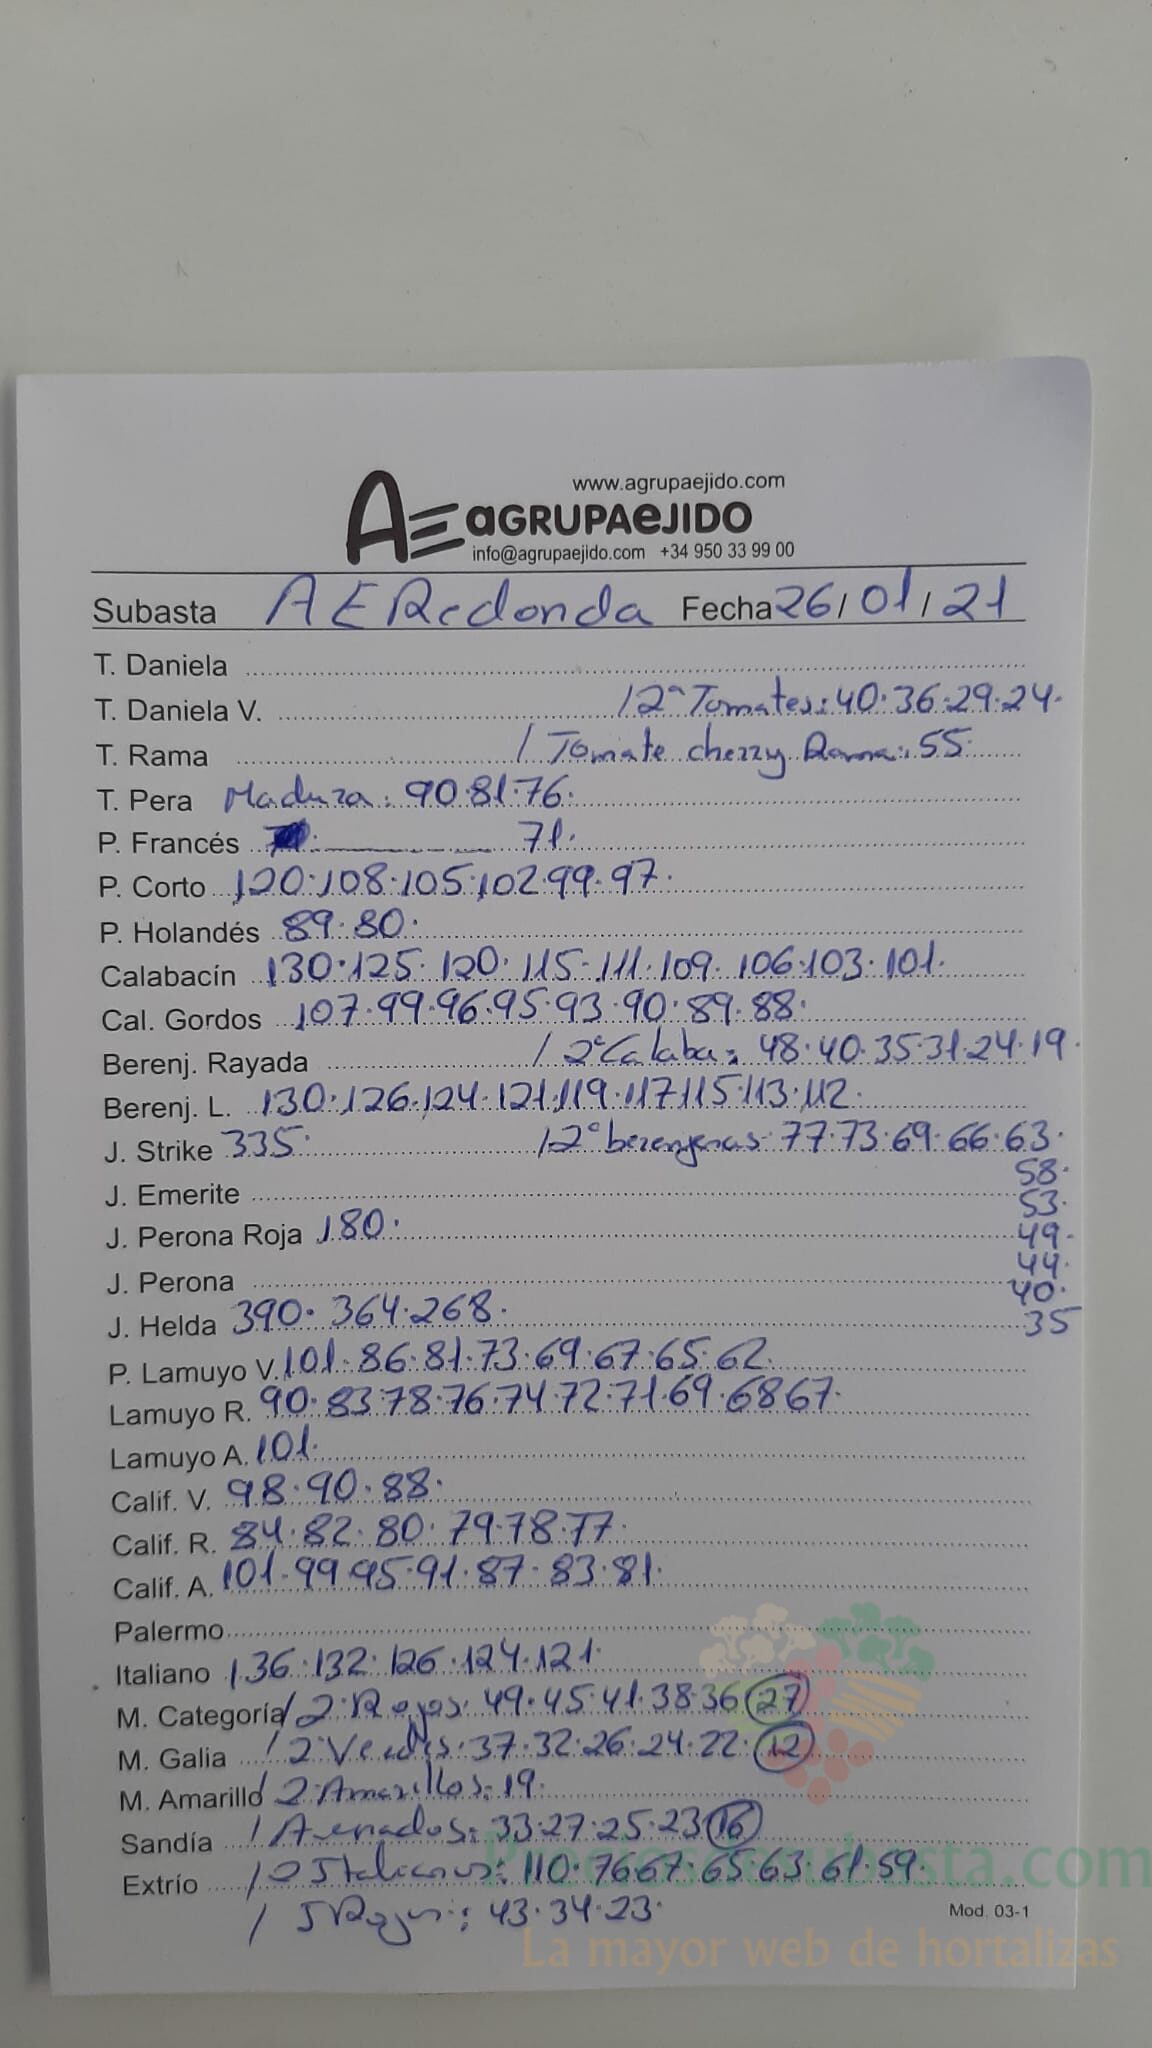 www.agrupaejido.com
AE aGRUPAeJIDO
info@agrupaejido.com +34 950 33 99 00
Subasta AE Redonda Fecha 26/01/21
T. Daniela
T. Daniela V. / 2ª Tomates: 40·36·29·24·
T. Rama / Tomate cherry Rama: 55·
T. Pera Madura: 90·81·76·
P. Francés 71·
P. Corto 120·108·105·102·99·97·
P. Holandés 89·80·
Calabacín 130·125·120·115·111·109·106·103·101·
Cal. Gordos 107·99·96·95·93·90·89·88·
Berenj. Rayada / 2ª Calaba: 48·40·35·31·24·19·
Berenj. L. 130·126·124·121·119·117·115·113·112·
J. Strike 335· / 2ª berenjenas: 77·73·69·66·63·
58·
J. Emerite
53·
J. Perona Roja 180· 49·
44·
J. Perona 40·
J. Helda 390·364·268· 35
P. Lamuyo V. 101·86·81·73·69·67·65·62·
Lamuyo R. 90·83·78·76·74·72·71·69·68·67·
Lamuyo A. 101·
Calif. V. 98·90·88·
Calif. R. 84·82·80·79·78·77·
Calif. A. 101·99·95·91·87·83·81·
Palermo
Italiano 136·132·126·124·121·
M. Categoría / 2ª Rojos: 49·45·41·38·36 27
M. Galia / 2ª Verdes: 37·32·26·24·22· 12
M. Amarillo / 2ª Amarillos: 19·
Sandía / Asenados: 33·27·25·23 16
Extrío / Italianos: 110·76·67·65·63·61·59·
/ 43·34·23·
Mod. 03-1
Preciosdesubasta.com
La mayor web de hortalizas